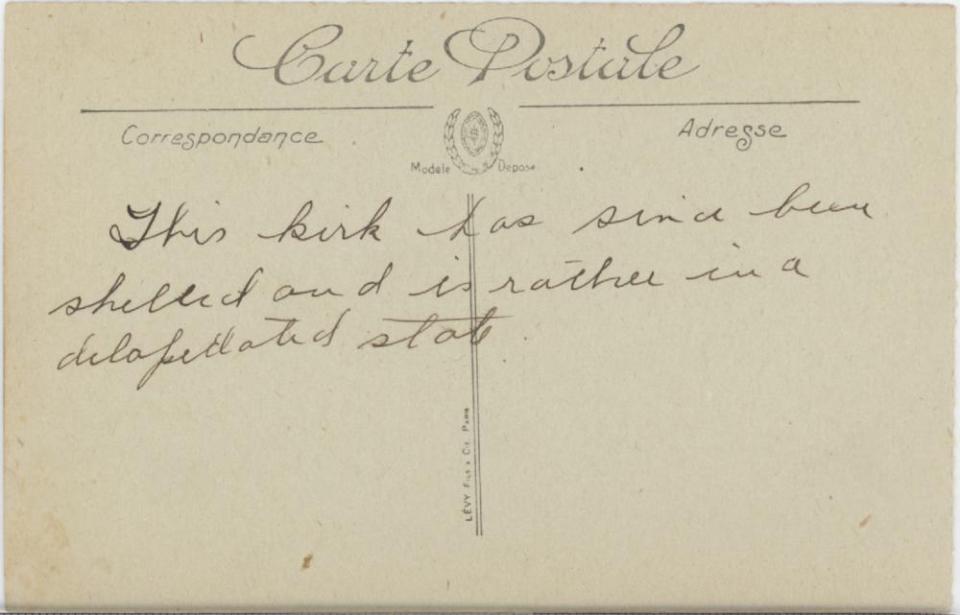 Carte Postale
Correspondance
Adresse
Modèle Déposé
This kirk has since been
shelled and is rather in a
delapedated state.
LÉVY Fils & Cie. Paris